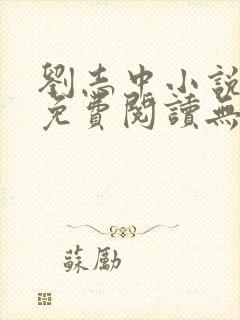 劉志中小說
免費閱讀無
蘇勵